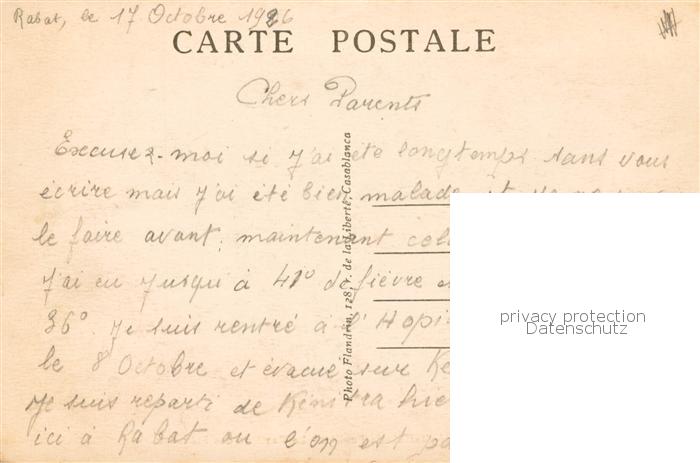 Rabat, le 17 Octobre 1926
CARTE POSTALE
Chers Parents
Excusez-moi si j'ai été longtemps sans vous
écrire mais j'ai été bien malade et
le faire avant, maintenant
J'ai eu jusqu'à 41° de fièvre
36° Je suis rentré à l'
le 8 Octobre et évacué sur
Je suis reparti de Kénitra
ici à Rabat ou l'on est
Photo Flandrin, 128, r. de la Liberté, Casablanca
privacy protection
Datenschutz